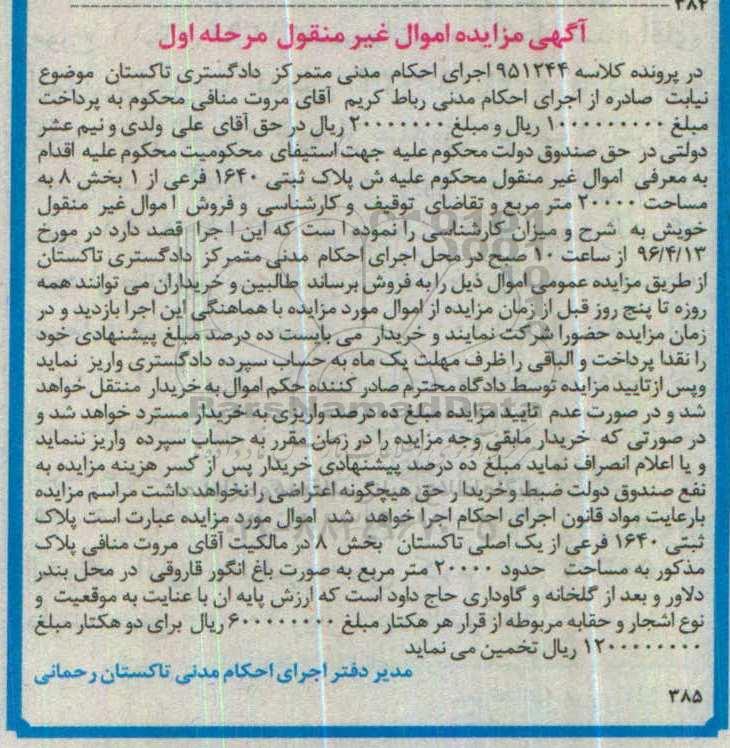 ۳۸۴
آگهی مزایده اموال غیر منقول مرحله اول
در پرونده کلاسه ۹۵۱۲۴۴ اجرای احکام مدنی متمرکز دادگستری تاکستان موضوع
نیابت صادره از اجرای احکام مدنی رباط کریم آقای مروت منافی محکوم به پرداخت
مبلغ ۱۰۰۰۰۰۰۰۰۰۰ ریال و مبلغ ۲۰۰۰۰۰۰۰۰ ریال در حق آقای علی ولدی و نیم عشر
دولتی در حق صندوق دولت محکوم علیه جهت استیفای محکومیت محکوم علیه اقدام
به معرفی اموال غیر منقول محکوم علیه ش پلاک ثبتی ۱۶۴۰ فرعی از ۱ بخش ۸ به
مساحت ۲۰۰۰۰ متر مربع و تقاضای توقیف و کارشناسی و فروش اموال غیر منقول
خویش به شرح و میزان کارشناسی را نموده ا ست که این ا جرا قصد دارد در مورخ
۹۶/۴/۱۳ از ساعت ۱۰ صبح در محل اجرای احکام مدنی متمرکز دادگستری تاکستان
از طریق مزایده عمومی اموال ذیل را به فروش برساند طالبین و خریداران می توانند همه
روزه تا پنج روز قبل از زمان مزایده از اموال مورد مزایده با هماهنگی این اجرا بازدید و در
زمان مزایده حضورا شرکت نمایند و خریدار می بایست ده درصد مبلغ پیشنهادی خود
را نقدا پرداخت و الباقی را ظرف مهلت یک ماه به حساب سپرده دادگستری واریز نماید
وپس ازتایید مزایده توسط دادگاه محترم صادر کننده حکم اموال به خریدار منتقل خواهد
شد و در صورت عدم تایید مزایده مبلغ ده درصد واریزی به خریدار مسترد خواهد شد و
در صورتی که خریدار مابقی وجه مزایده را در زمان مقرر به حساب سپرده واریز ننماید
و یا اعلام انصراف نماید مبلغ ده درصد پیشنهادی خریدار پس از کسر هزینه مزایده به
نفع صندوق دولت ضبط وخریدا ر حق هیچگونه اعتراضی را نخواهد داشت مراسم مزایده
بارعایت مواد قانون اجرای احکام اجرا خواهد شد اموال مورد مزایده عبارت است پلاک
ثبتی ۱۶۴۰ فرعی از یک اصلی تاکستان بخش ۸ در مالکیت آقای مروت منافی پلاک
مذکور به مساحت حدود ۲۰۰۰۰ متر مربع به صورت باغ انگور قاروقی در محل بندر
دلاور و بعد از گلخانه و گاوداری حاج داود است که ارزش پایه ان با عنایت به موقعیت و
نوع اشجار و حقابه مربوطه از قرار هر هکتار مبلغ ۶۰۰۰۰۰۰۰۰ ریال برای دو هکتار مبلغ
۱۲۰۰۰۰۰۰۰۰ ریال تخمین می نماید
مدیر دفتر اجرای احکام مدنی تاکستان رحمانی
۳۸۵
ParsNamadData